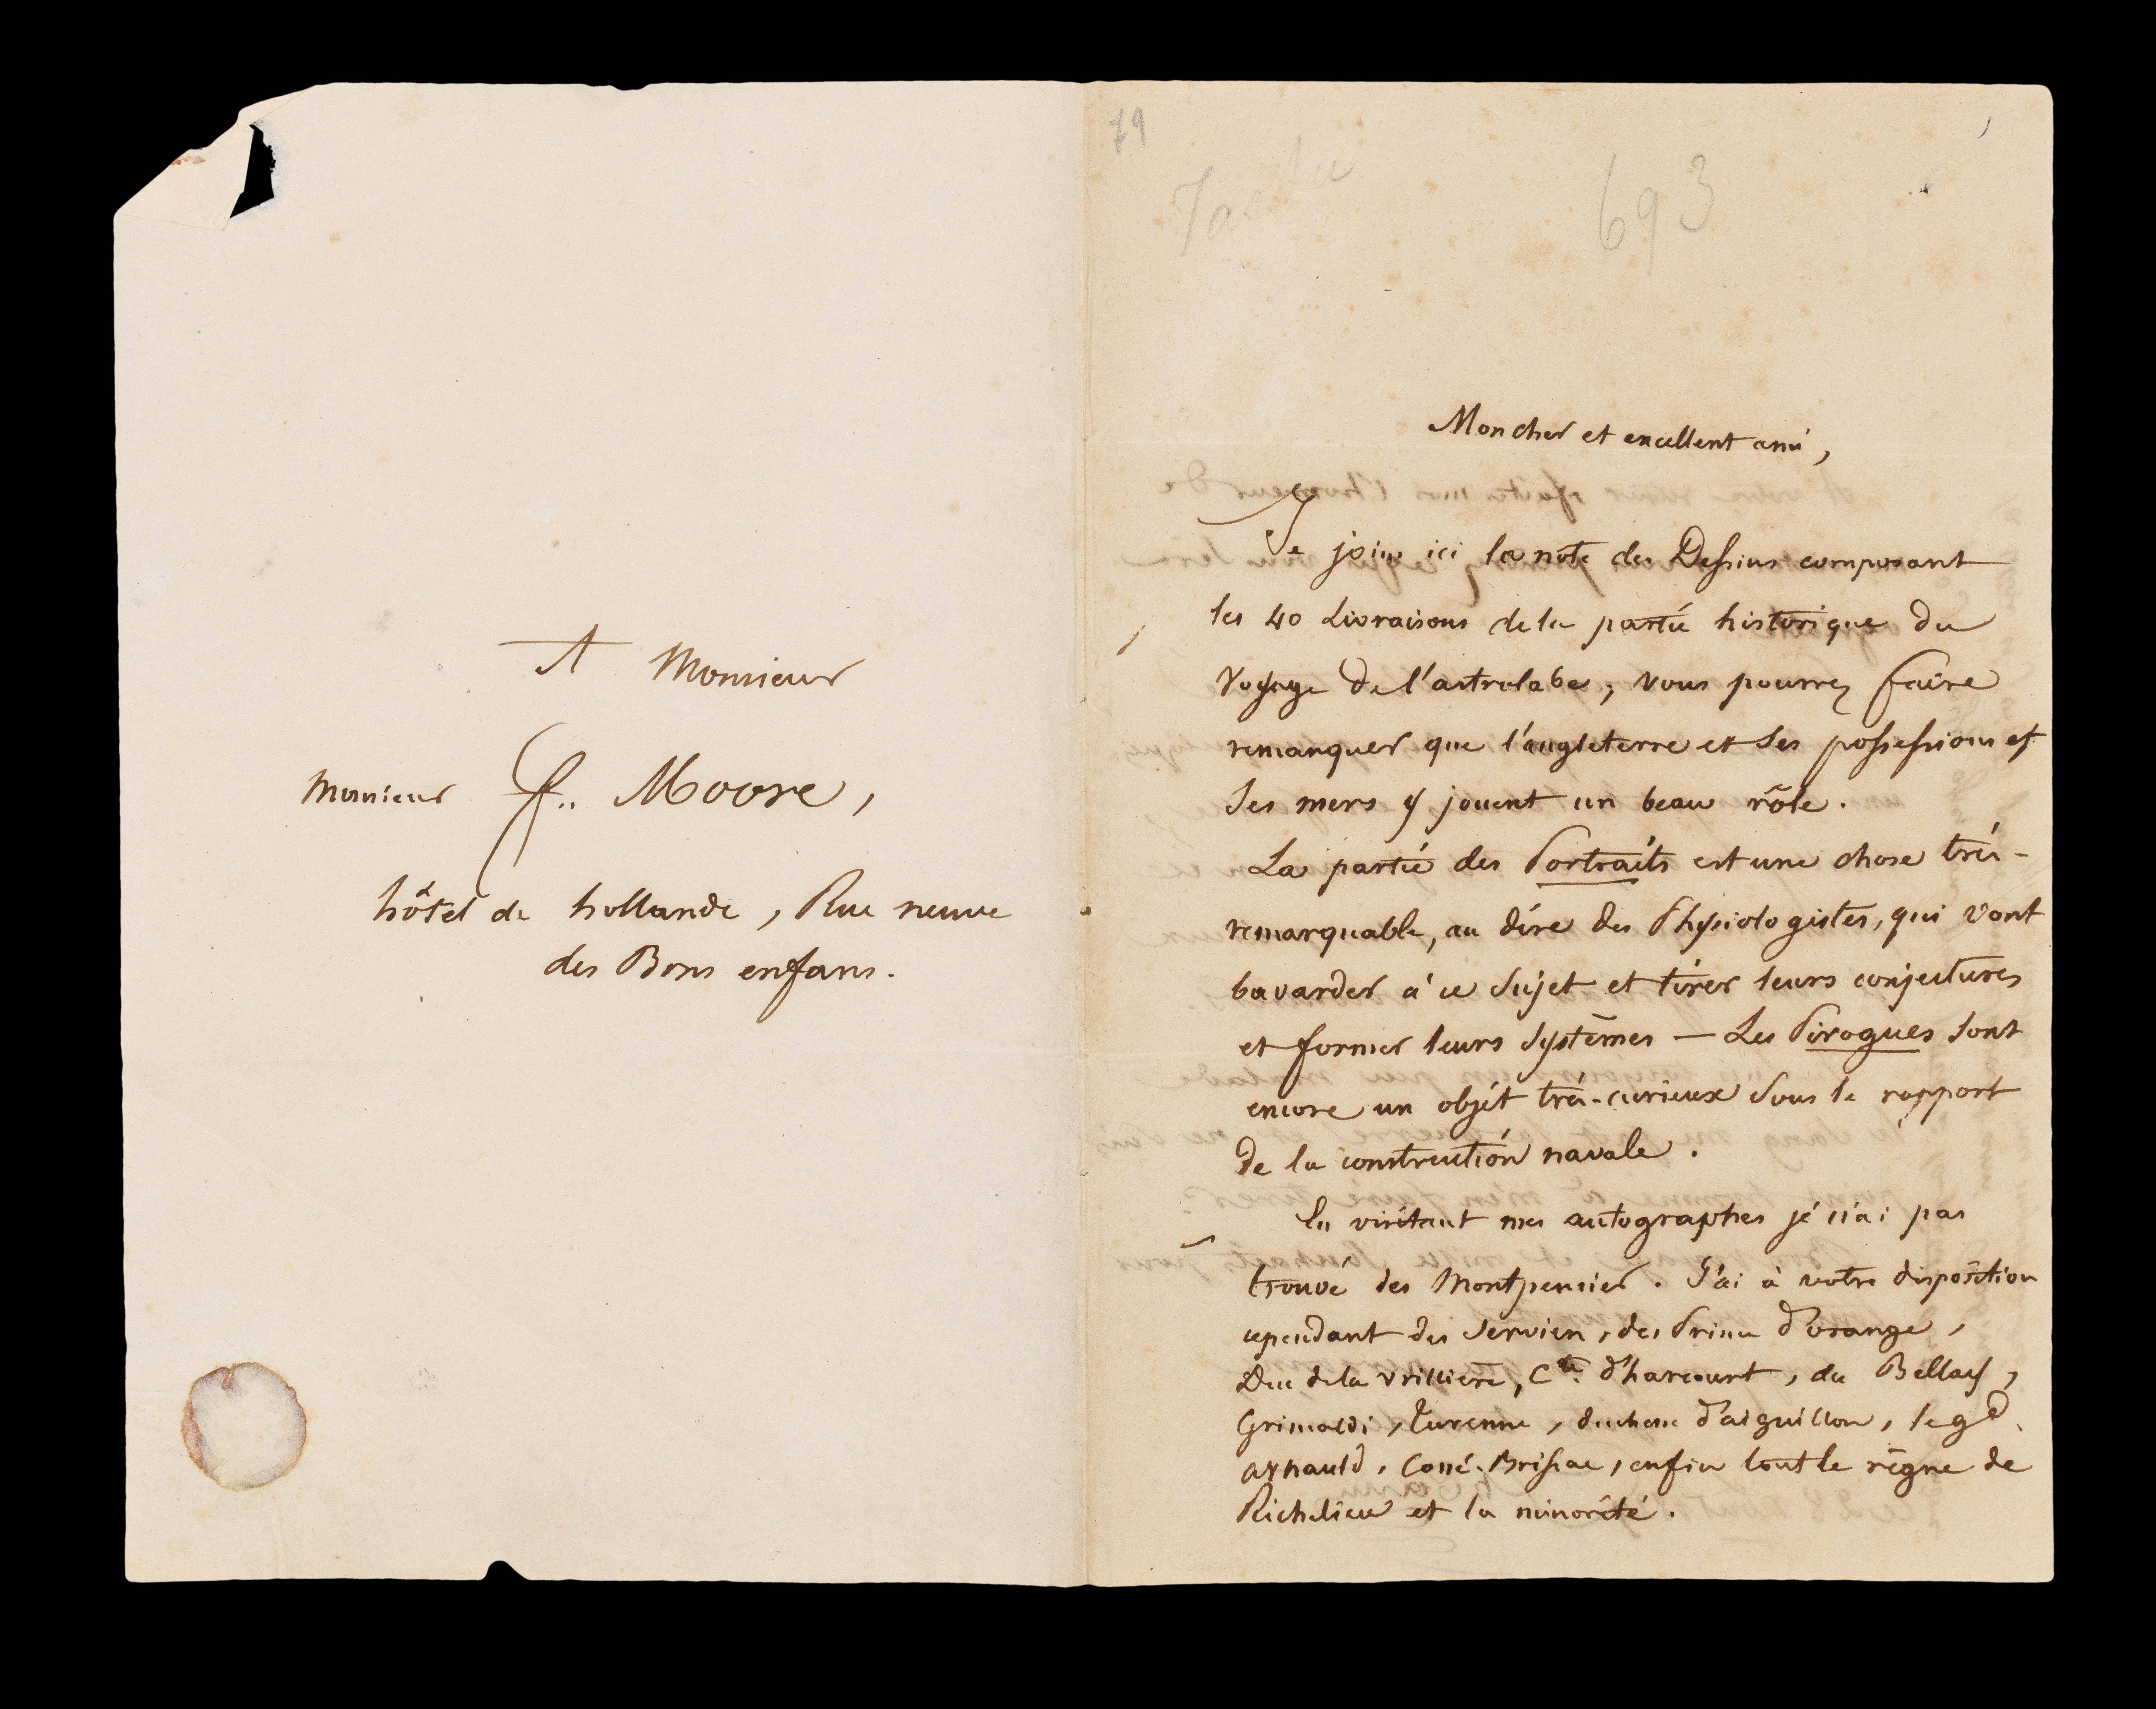 A Monsieur
Monsieur f.. Moore,
hôtel de hollande, Rue neuve
des Bons enfans.
79
Tastu
693
Mon cher et excellent ami,
Je joins ici la note des Dessins composant
les 40 Livraisons de la partie historique du
Voyage de l'astrolabe; vous pourrez faire
remarquer que l'angleterre et ses possessions et
ses mers y jouent un beau rôle.
La partie des Portraits est une chose très-
remarquable, au dire des Physiologistes, qui vont
bavarder à ce sujet et tirer leurs conjectures
et former leurs systêmes — Les Pirogues sont
encore un objet très-curieux sous le rapport
de la construction navale.
En visitant mes autographes je n'ai pas
trouvé des Montpensier. J'ai à votre disposition
cependant des Servien, des Prince d'orange,
Duc de la vrilliere, Cte. d'harcourt, du Bellay,
Grimaldi, Turenne, duchesse d'aiguillon, le gd.
arnauld, Cossé-Brissac, enfin tout le règne de
Richelieu et la minorité.